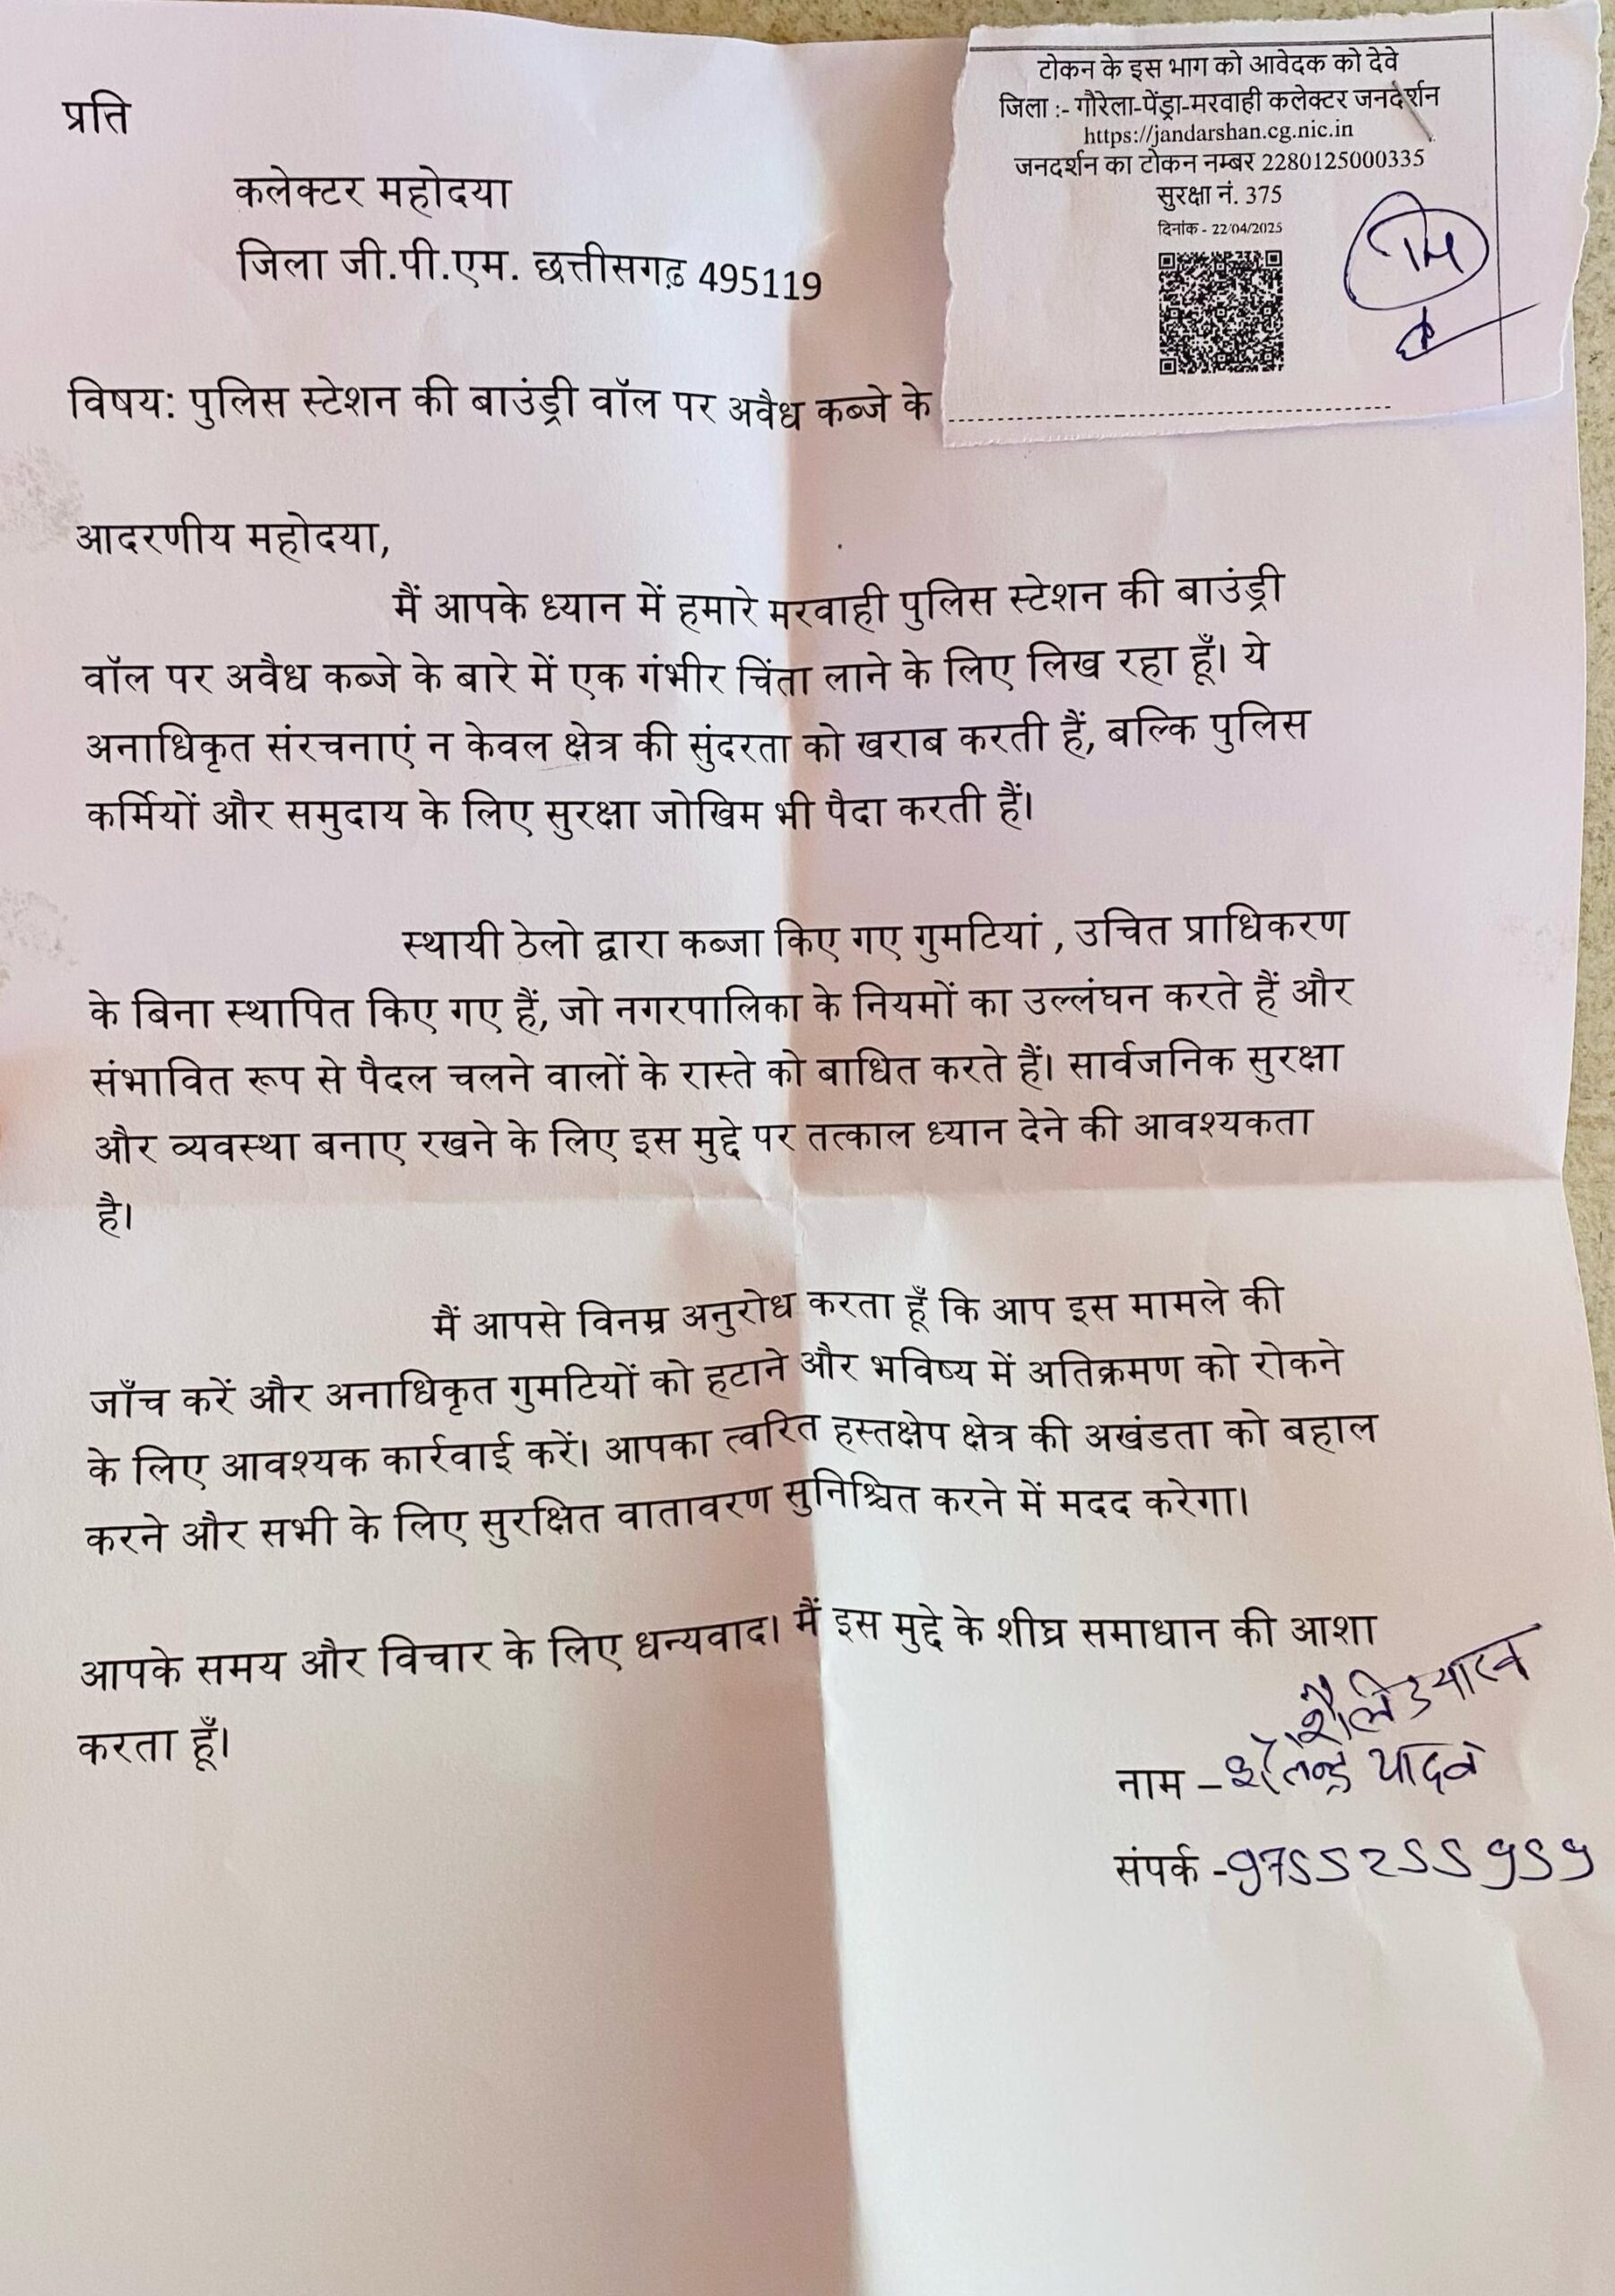 प्रति
कलेक्टर महोदया
जिला जी.पी.एम. छत्तीसगढ़ 495119
टोकन के इस भाग को आवेदक को देवे
जिला :- गौरेला-पेंड्रा-मरवाही कलेक्टर जनदर्शन
https://jandarshan.cg.nic.in
जनदर्शन का टोकन नम्बर 2280125000335
सुरक्षा नं. 375
दिनांक - 22/04/2025
विषय: पुलिस स्टेशन की बाउंड्री वॉल पर अवैध कब्जे के
आदरणीय महोदया,
मैं आपके ध्यान में हमारे मरवाही पुलिस स्टेशन की बाउंड्री
वॉल पर अवैध कब्जे के बारे में एक गंभीर चिंता लाने के लिए लिख रहा हूँ। ये
अनाधिकृत संरचनाएं न केवल क्षेत्र की सुंदरता को खराब करती हैं, बल्कि पुलिस
कर्मियों और समुदाय के लिए सुरक्षा जोखिम भी पैदा करती हैं।
स्थायी ठेलो द्वारा कब्जा किए गए गुमटियां , उचित प्राधिकरण
के बिना स्थापित किए गए हैं, जो नगरपालिका के नियमों का उल्लंघन करते हैं और
संभावित रूप से पैदल चलने वालों के रास्ते को बाधित करते हैं। सार्वजनिक सुरक्षा
और व्यवस्था बनाए रखने के लिए इस मुद्दे पर तत्काल ध्यान देने की आवश्यकता
है।
मैं आपसे विनम्र अनुरोध करता हूँ कि आप इस मामले की
जाँच करें और अनाधिकृत गुमटियों को हटाने और भविष्य में अतिक्रमण को रोकने
के लिए आवश्यक कार्रवाई करें। आपका त्वरित हस्तक्षेप क्षेत्र की अखंडता को बहाल
करने और सभी के लिए सुरक्षित वातावरण सुनिश्चित करने में मदद करेगा।
आपके समय और विचार के लिए धन्यवाद। मैं इस मुद्दे के शीघ्र समाधान की आशा
करता हूँ।
नाम – शैलेन्द्र यादव
संपर्क -9755255959